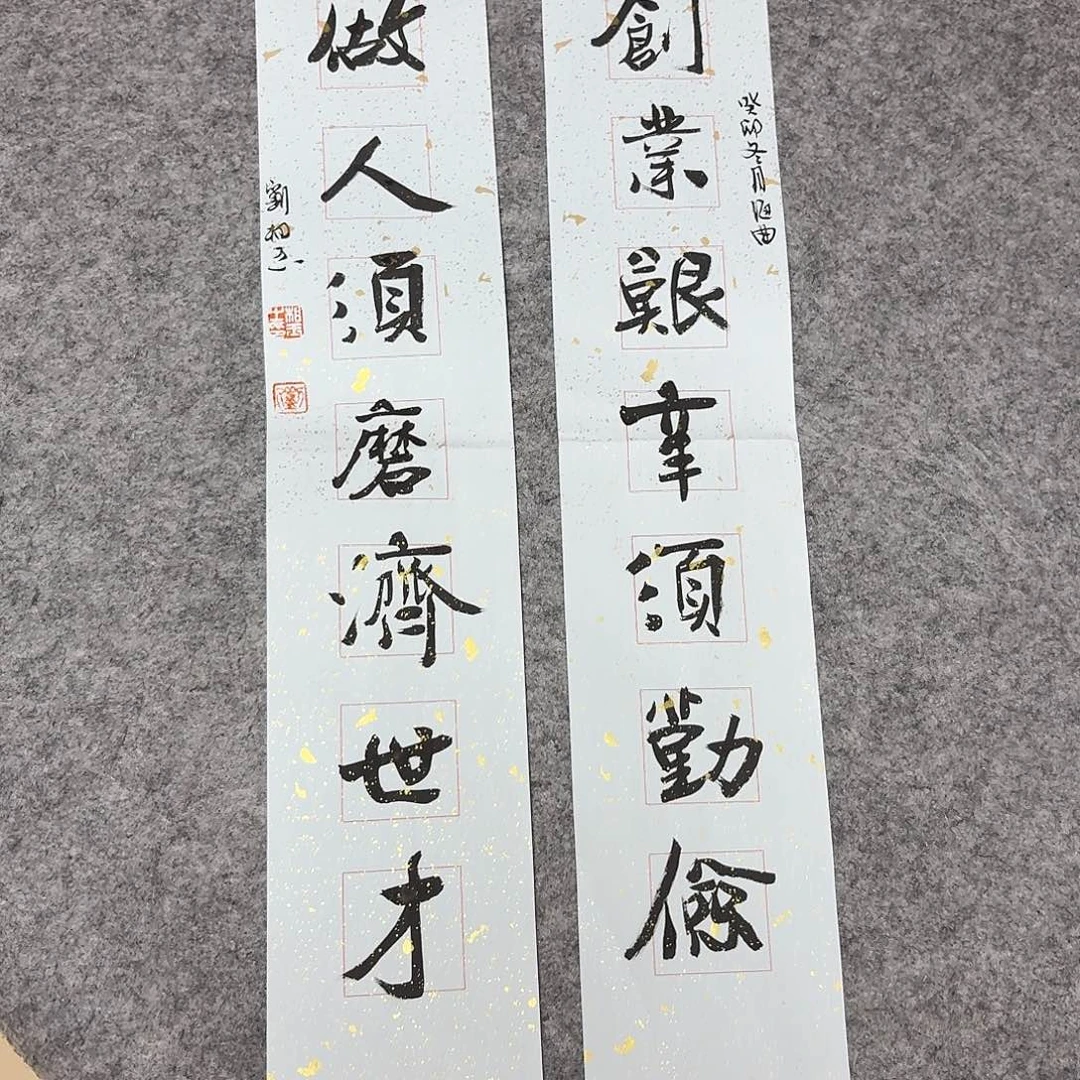 創業艱辛須勤儉
癸卯冬月海曲
做人須磨濟世才
劉相